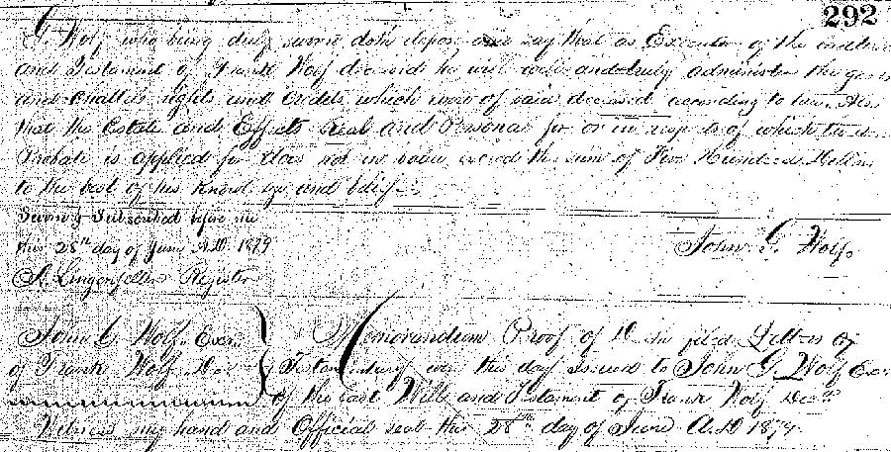 292
G. Wolf who being duly sworn doth depose and say that as Executor of the
and Testament of Frank Wolf deceased he will well and truly administer the goods
and Chattles rights and Credits which were of said deceased according to law. Also
that the Estate and Effects Real and Personal for or in respect of which the
Probate is applied for does not in value exceed the sum of Five Hundred Dollars
to the best of his knowledge and belief
Sworn & Subscribed before me
this 28th day of June A.D. 1879
John G. Wolf
S. Lingenfelter Register
John G Wolf Exer.
of Frank Wolf Dec
Memorandum Proof of filed Letters of
Testamentary were this day issued to John G. Wolf Exr
of the Last Will and Testament of Frank Wolf Decd
Witness my hand and Official seal this 28th day of June A.D 1879.